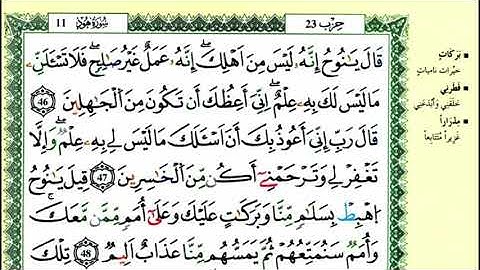 سُورَةُ هُود 11
حِزْب 23
قَالَ يَٰنُوحُ إِنَّهُۥ لَيْسَ مِنَ اَهْلِكَ إِنَّهُۥ عَمَلٌ غَيْرُ صَٰلِحٍ فَلَا تَسْـَٔلَنِّۦ
مَا لَيْسَ لَكَ بِهِۦ عِلْمٌ إِنِّيَ أَعِظُكَ أَن تَكُونَ مِنَ اَلْجَٰهِلِينَ 46
قَالَ رَبِّ إِنِّيَ أَعُوذُ بِكَ أَنَ اَسْـَٔلَكَ مَا لَيْسَ لِے بِهِۦ عِلْمٌ وَإِلَّا
تَغْفِرْ لِے وَتَرْحَمْنِےٓ أَكُن مِّنَ اَلْخَٰسِرِينَ 47 قِيلَ يَٰنُوحُ
اُ۪هْبِطْ بِسَلَٰمٍ مِّنَّا وَبَرَكَٰتٍ عَلَيْكَ وَعَلَىٰٓ أُمَمٍ مِّمَّن مَّعَكَ
وَأُمَمٌ سَنُمَتِّعُهُمْ ثُمَّ يَمَسُّهُم مِّنَّا عَذَابٌ اَلِيمٌ 48 تِلْكَ
بَرَكَاتٍ
خيرات ناميات
فَطَرَنِي
خلقني وأبدعني
مِدْرَاراً
غزيراً متتابعاً